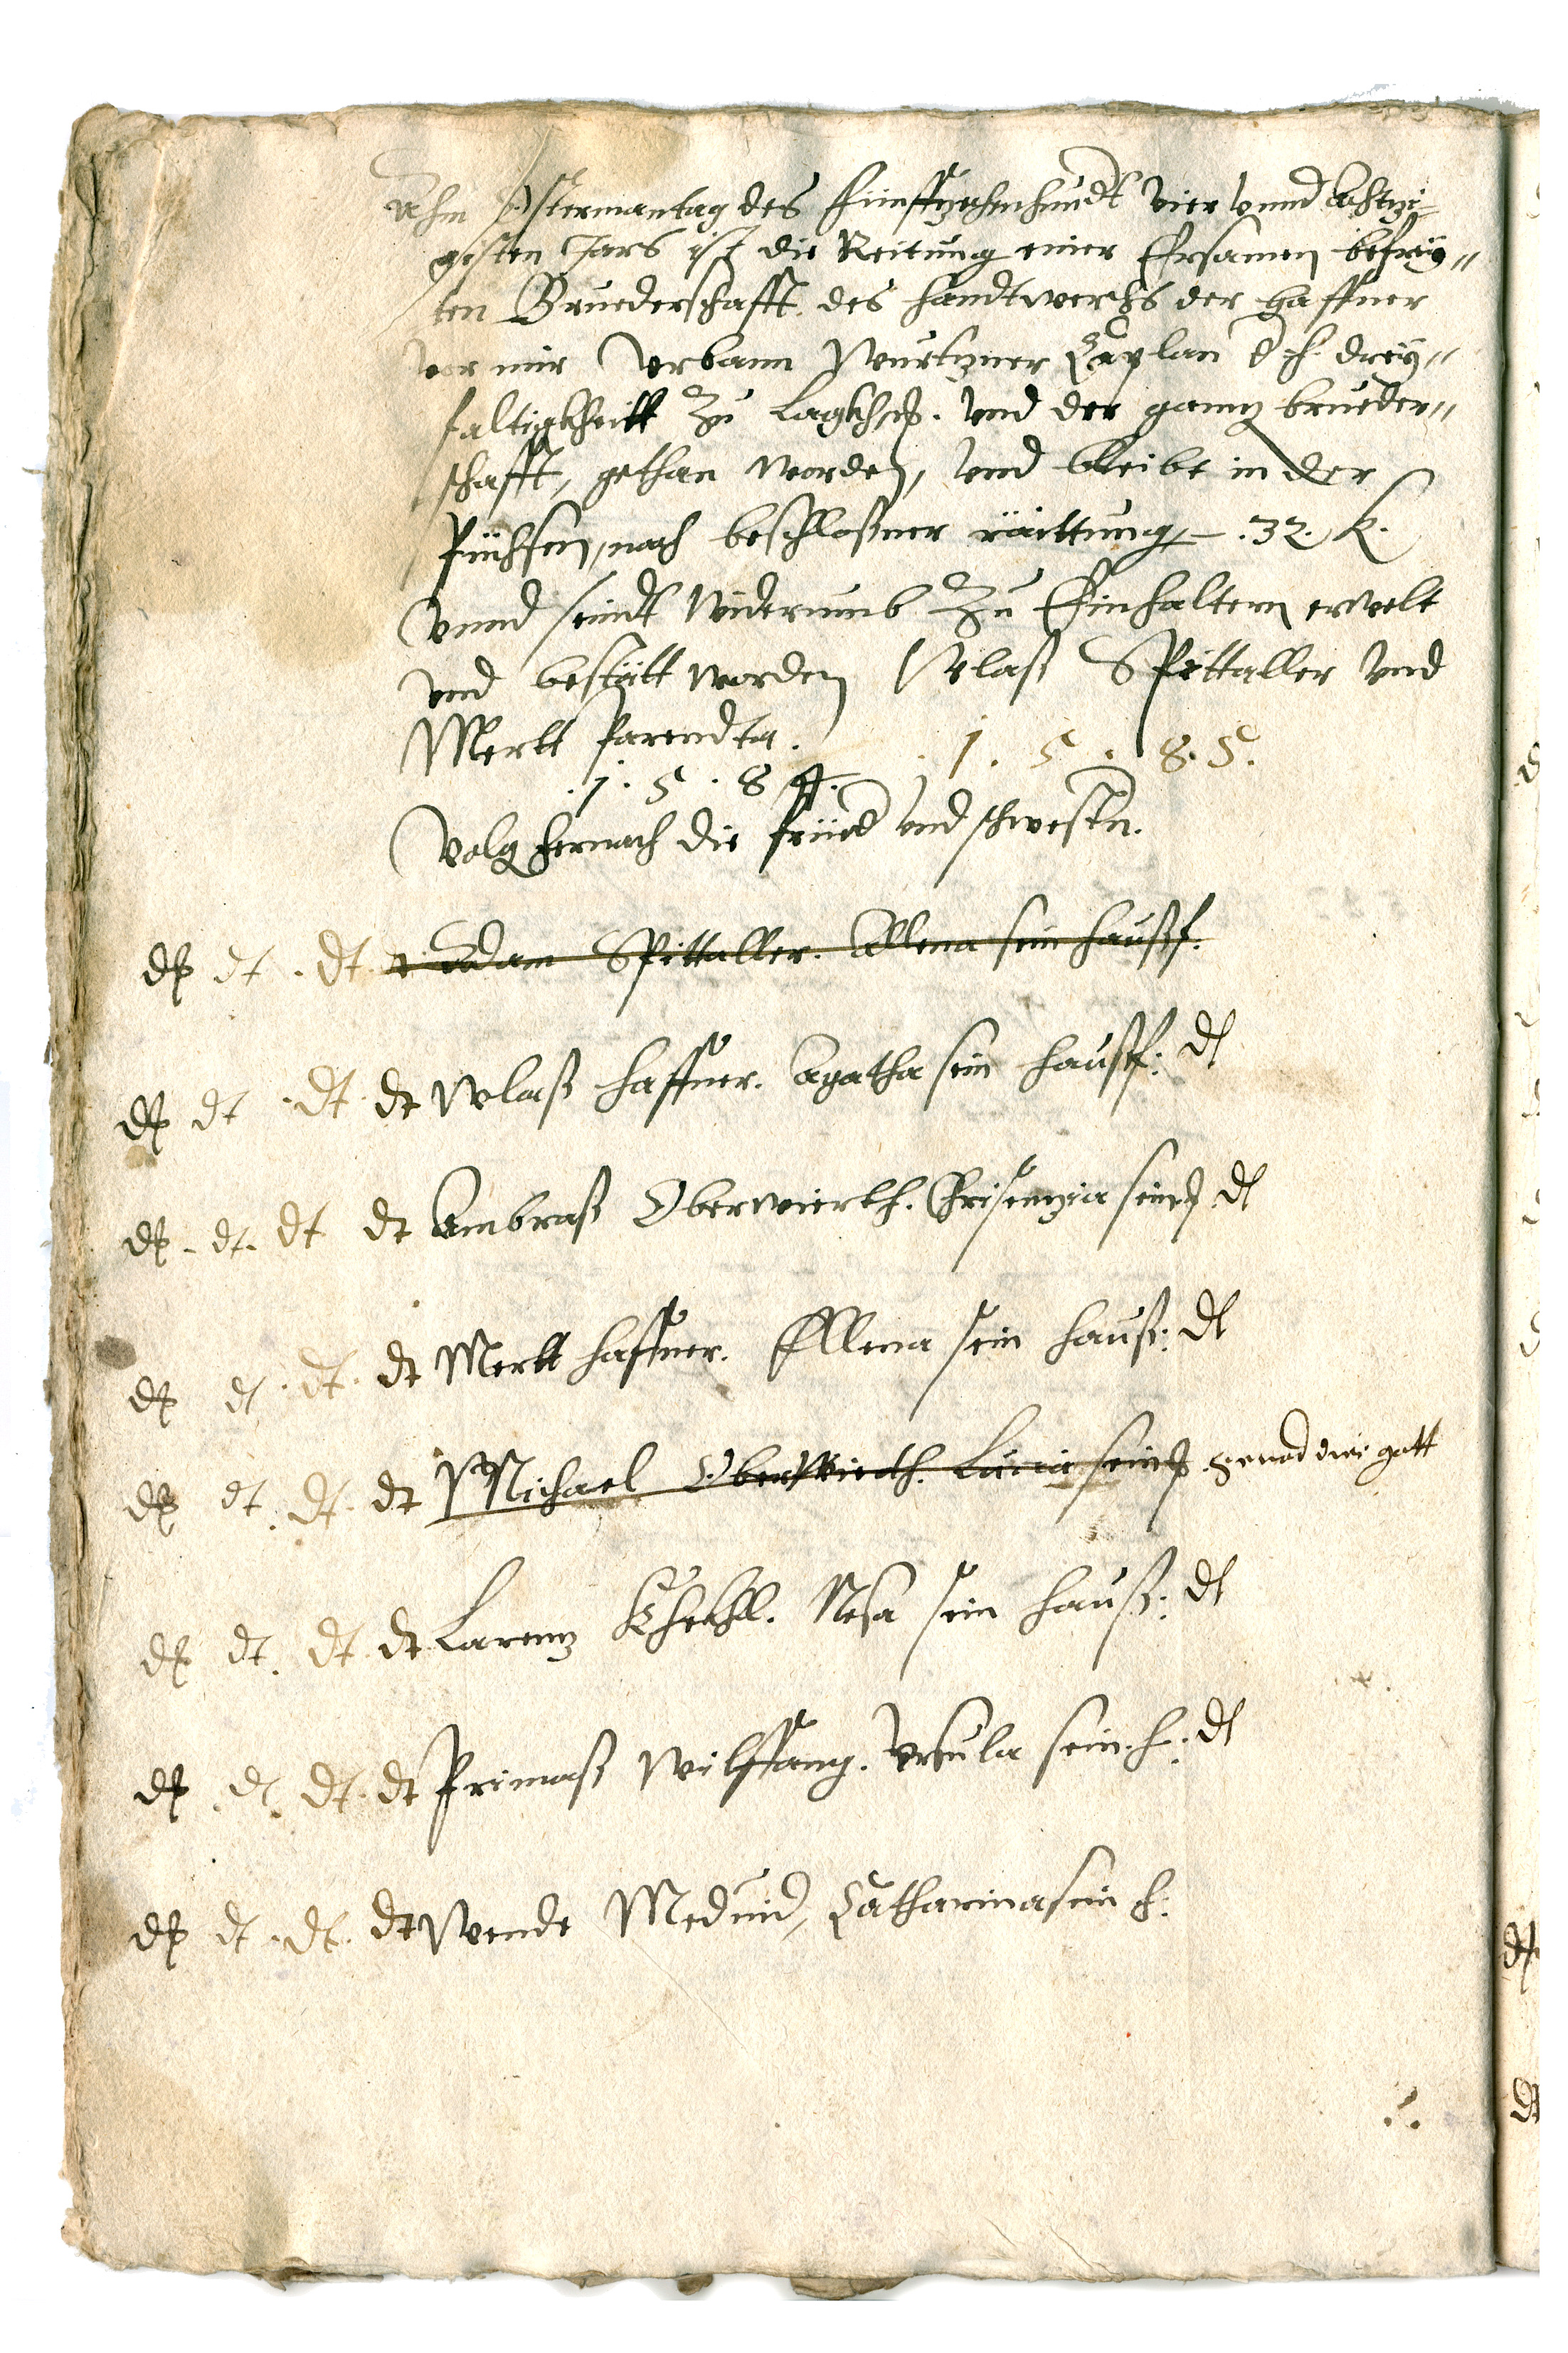 Ahm Ostermantag des fünffzechenhundt vier vnnd achtzi-
gisten Jars ist die Reitung einer Ersamen befrey"
ten Bruederschafft des handtwerchs der Haffner
vor mir Vrbann Wurtzner Caplan d. h. drey"
faltigkheitt Zu Lagkh. vnd der gantz brueder"
schafft, gethan worden, vnd bleibt in der
Püchsen, nach beschloßner räittung – .32. k.
Vnnd seindt widerumb Zu Einhaltern erwelt
vnd bestätt worden Vlaß Spittaller vnd
Mertt Parendta.
. 1 . 5 . 8 4. . 1 . 5 . 8 . 5 .
Volg hernach die prüed vnd schwestn.
dt dt . dt Adam Spittaller. Ellena sein haußf.
dt dt . dt dt Vlaß haffner. Agatha sein haußf: dt
dt . dt . dt dt Ambraß Oberwierth. Chrisenzia sein h dt
dt dt . dt . dt Mertt haffner. Ellena sein hauß: dt
dt dt . dt . dt Michael Oberwierth. Lucia sein h genad dir gott
dt dt . dt . dt Larenz Khechl. Nesa sein hauß: dt
dt . dt . dt . dt Primaß Wilffang. Vrsula sein h.: dt
dt dt . dt . dt Wende Meduid, Catharina sein h: